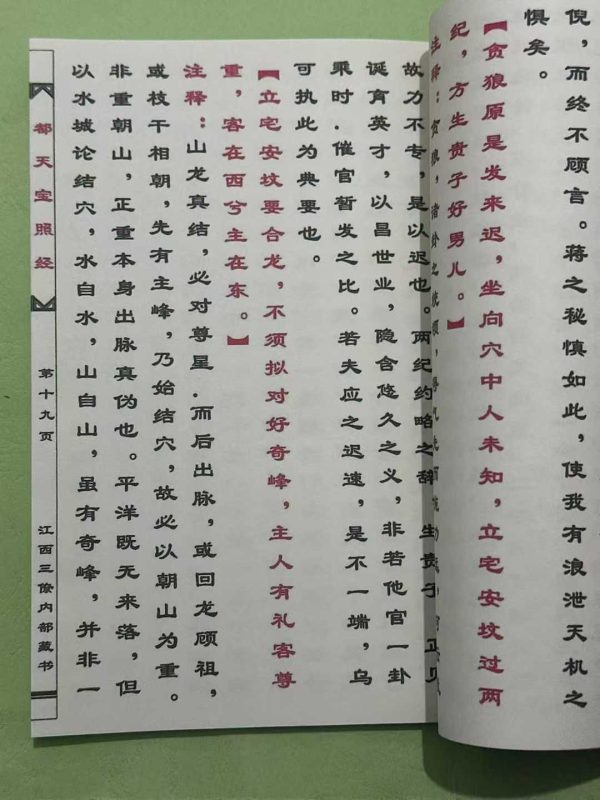 倪，而终不顾言。蒋之秘慎如此，使我有浪泄天机之
惧矣。
【贪狼原是发来迟，坐向穴中人未知，立宅安坟过两
纪，方生贵子好男儿。】
注释：贪狼，诸卦之统领，
故力不专，是以迟也。两纪约略之辞，生贵子，正见
诞育英才，以昌世业，隐含悠久之义，非若他官一卦
乘时．催官暂发之比。若夫应之迟速，是不一端，乌
可执此为典要也。
【立宅安坟要合龙，不须拟对好奇峰，主人有礼客尊
重，客在西兮主在东。】
注释：山龙真结，必对尊星．而后出脉，或回龙顾祖，
或枝干相朝，先有主峰，乃始结穴，故必以朝山为重。
非重朝山，正重本身出脉真伪也。平洋既无来落，但
以水城论结穴，水自水，山自山，虽有奇峰，并非一
都天宝照经
第十九页
江西三僚内部藏书